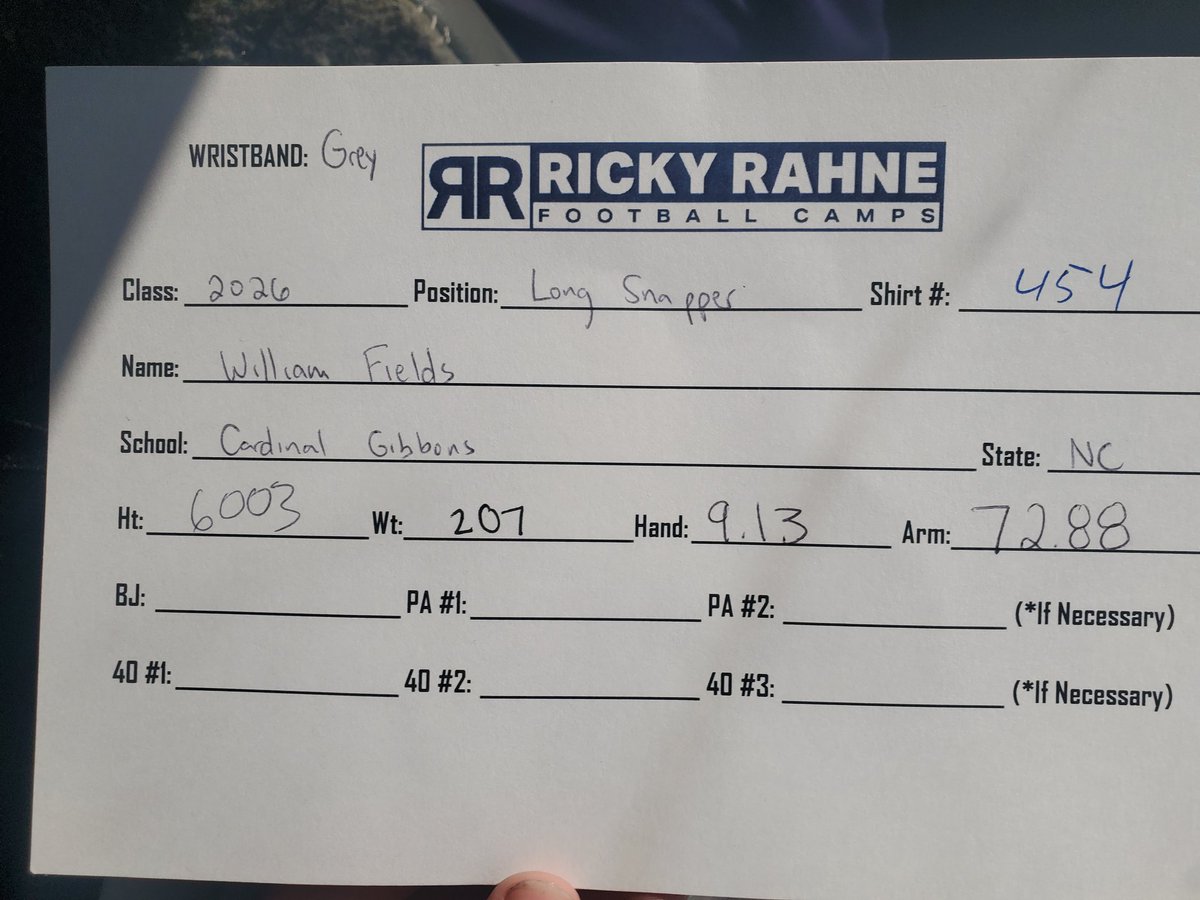 WRISTBAND: Grey
RR RICKY RAHNE
FOOTBALL CAMPS
Class: 2026 Position: Long Snapper Shirt #: 454
Name: William Fields
School: Cardinal Gibbons State: NC
Ht: 6003 Wt: 207 Hand: 9.13 Arm: 72.88
BJ: PA #1: PA #2: (*If Necessary)
40 #1: 40 #2: 40 #3: (*If Necessary)